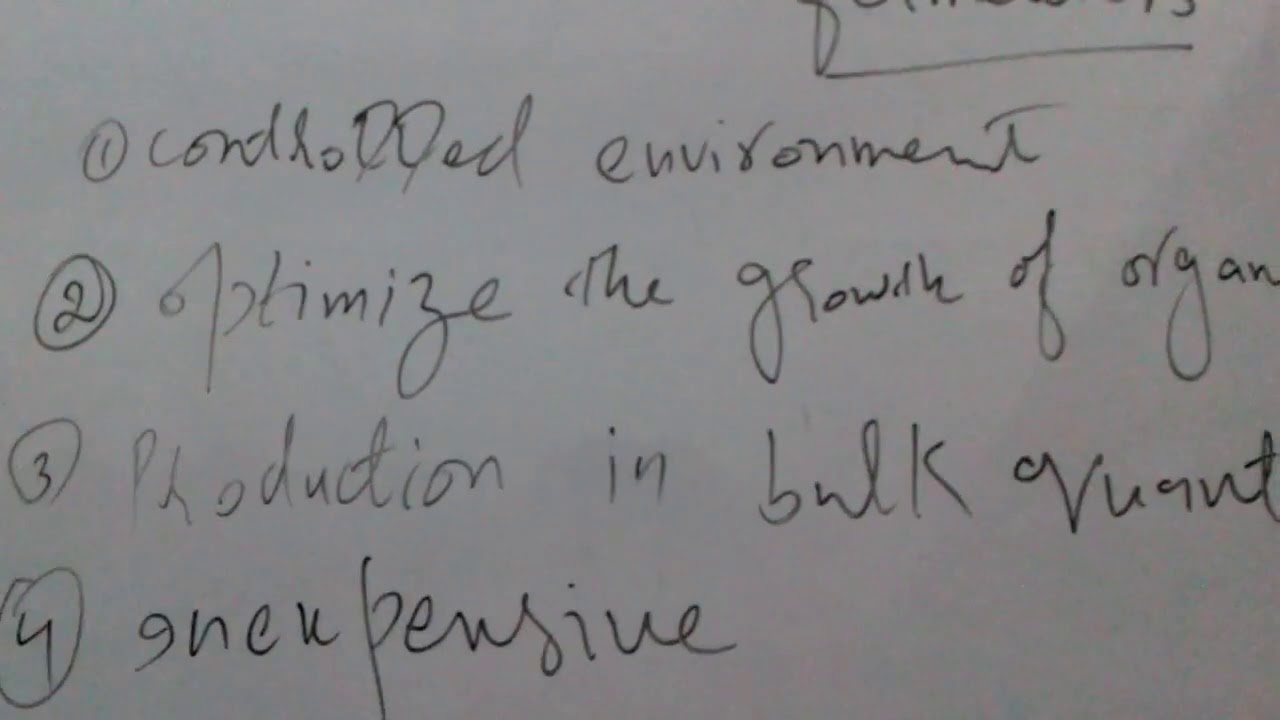 ① controlled environment
② optimize the growth of organ
③ Production in bulk quant
④ Inexpensive